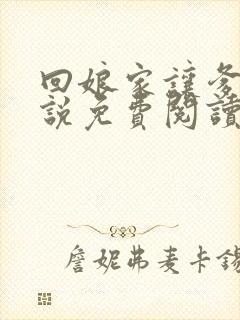 回娘家讓爹
說免費閱讀
詹妮弗麦卡錫